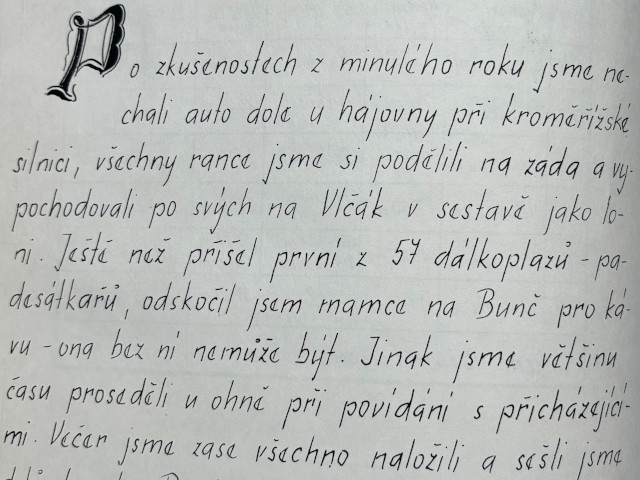 Po zkušenostech z minulého roku jsme ne-
chali auto dole u hájovny při kroměřížské
silnici, všechny rance jsme si podělili na záda a vy-
pochodovali po svých na Vlčák v sestavě jako lo-
ni. Ještě než přišel první z 57 dálkoplazů - pa-
desátkařů, odskočil jsem mamce na Bunč pro ká-
vu - ona bez ní nemůže být. Jinak jsme většinu
času proseděli u ohně při povídání s přicházející-
mi. Večer jsme zase všechno naložili a sešli jsme